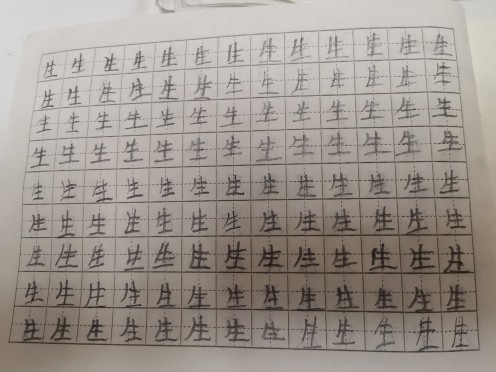 生生生生生生生生生生生生生
生生生生生生生生生生生生生
生生生生生生生生生生生生生
生生生生生生生生生生生生生
生生生生生生生生生生生生生
生生生生生生生生生生生生生
生生生生生生生生生生生生生
生生生生生生生生生生生生生
生生生生生生生生生生生生生